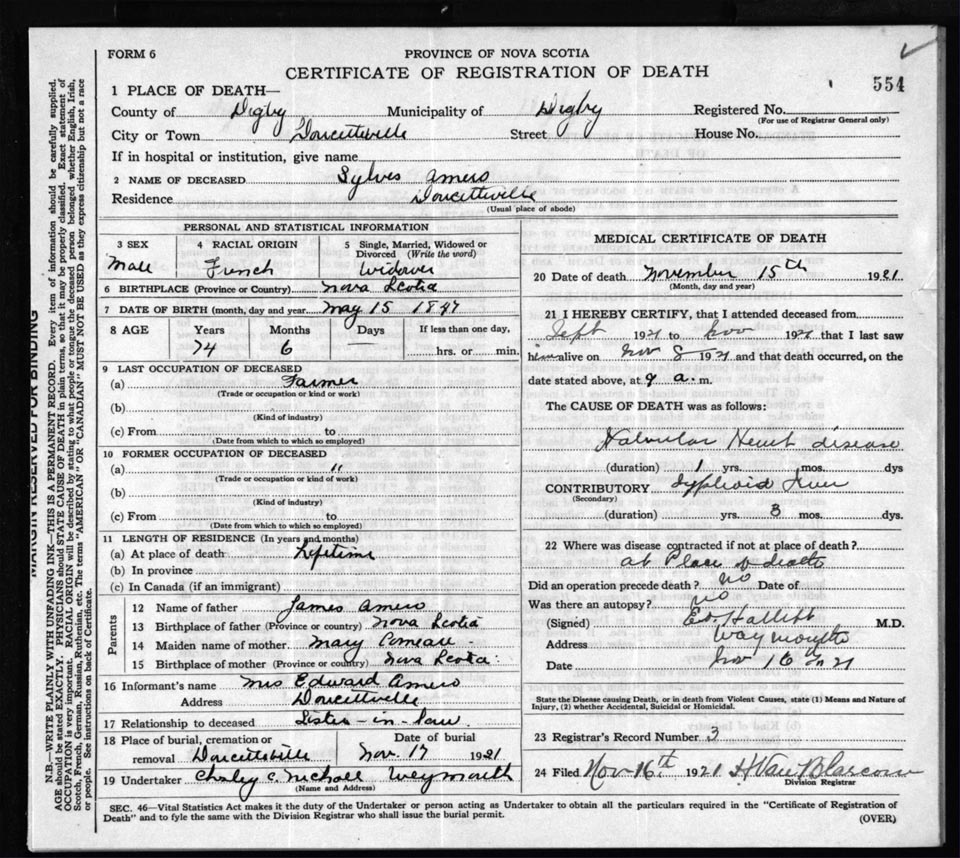 FORM 6
PROVINCE OF NOVA SCOTIA
CERTIFICATE OF REGISTRATION OF DEATH
554
1 PLACE OF DEATH—
County of Digby Municipality of Digby Registered No.
(For use of Registrar General only)
City or Town Doucetteville Street House No.
If in hospital or institution, give name
2 NAME OF DECEASED Sylves Amero
Residence Doucetteville
(Usual place of abode)
PERSONAL AND STATISTICAL INFORMATION
3 SEX 4 RACIAL ORIGIN 5 Single, Married, Widowed or Divorced (Write the word)
Male French Widower
6 BIRTHPLACE (Province or Country) Nova Scotia
7 DATE OF BIRTH (month, day and year) May 15 1847
8 AGE Years Months Days If less than one day,
74 6 — hrs. or min.
9 LAST OCCUPATION OF DECEASED
(a) Farmer
(Trade or occupation or kind or work)
(b)
(Kind of industry)
(c) From to
(Date from which to which so employed)
10 FORMER OCCUPATION OF DECEASED
(a) "
(Trade or occupation or kind of work)
(b)
(Kind of industry)
(c) From to
(Date from which to which so employed)
11 LENGTH OF RESIDENCE (In years and months)
(a) At place of death Lifetime
(b) In province
(c) In Canada (if an immigrant)
Parents
12 Name of father James Amero
13 Birthplace of father (Province or country) Nova Scotia
14 Maiden name of mother Mary Comeau
15 Birthplace of mother (Province or country) Nova Scotia
16 Informant's name Mrs Edward Amero
Address Doucetteville
17 Relationship to deceased Sister-in-law
18 Place of burial, cremation or removal Date of burial
Doucetteville Nov. 17 1921
19 Undertaker C. Nichall Weymouth
(Name and Address)
MEDICAL CERTIFICATE OF DEATH
20 Date of death November 15th 1921
(Month, day and year)
21 I HEREBY CERTIFY, that I attended deceased from
Sept 1921 to Nov 1921 that I last saw
him alive on Nov 8 1921 and that death occurred, on the
date stated above, at 9 a. m.
The CAUSE OF DEATH was as follows:
Valvular Heart disease
(duration) 1 yrs. mos. dys
CONTRIBUTORY Typhoid Fever
(Secondary)
(duration) yrs. 3 mos. dys.
22 Where was disease contracted if not at place of death?
at Place of death
Did an operation precede death? no Date of
Was there an autopsy? no
(Signed) M.D.
Address Weymouth
Date Nov 16 1921
State the Disease causing Death, or in death from Violent Causes, state (1) Means and Nature of
Injury, (2) whether Accidental, Suicidal or Homicidal.
23 Registrar's Record Number 3
24 Filed Nov 16th 1921 H Van Blarcom
Division Registrar
SEC. 46—Vital Statistics Act makes it the duty of the Undertaker or person acting as Undertaker to obtain all the particulars required in the "Certificate of Registration of
Death" and to fyle the same with the Division Registrar who shall issue the burial permit.
(OVER)
MARGIN RESERVED FOR BINDING
N.B.—WRITE PLAINLY WITH UNFADING INK—THIS IS A PERMANENT RECORD. Every item of information should be carefully supplied.
AGE should be stated EXACTLY. PHYSICIANS should STATE CAUSE OF DEATH in plain terms, so that it may be properly classified. Exact statement of
OCCUPATION is very important. RACIAL ORIGIN will be described by stating to what people or tongue the deceased person belonged whether English, Irish,
Scotch, French, German, Russian, Ruthenian, etc. The terms "AMERICAN" OR "CANADIAN" MUST NOT BE USED as they express citizenship but not a race
or people. See instructions on back of Certificate.